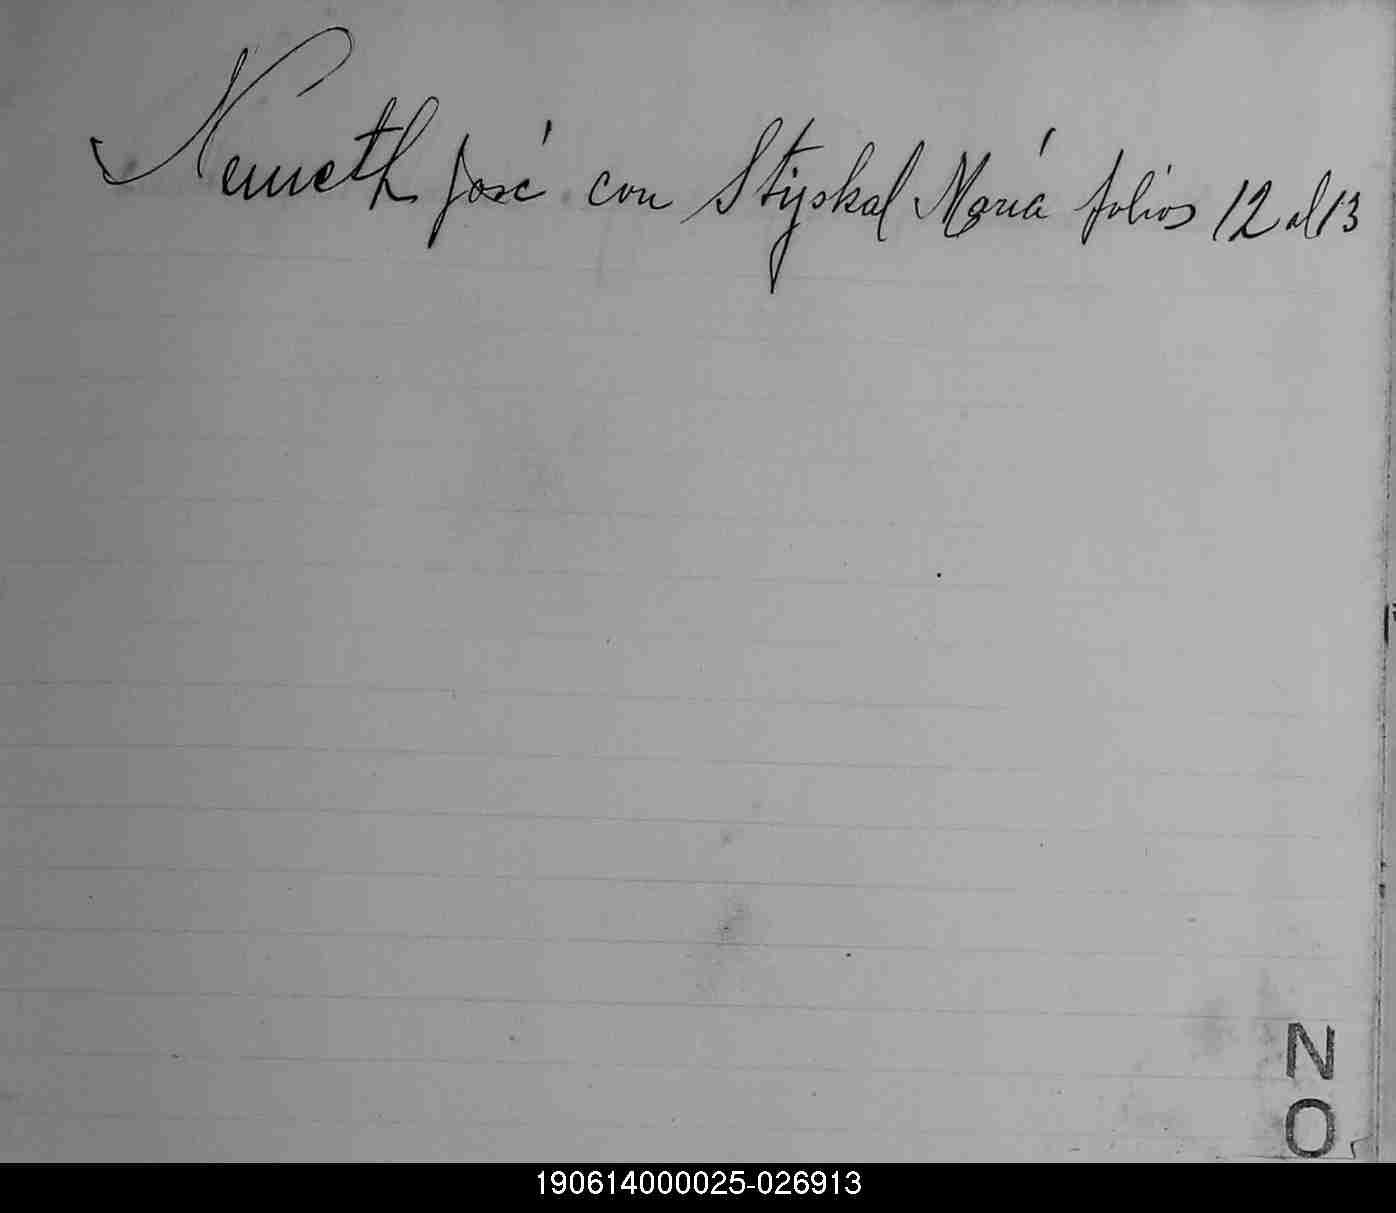 Nemeth José con Styskal María folios 12 al 13
N
O
190614000025-026913